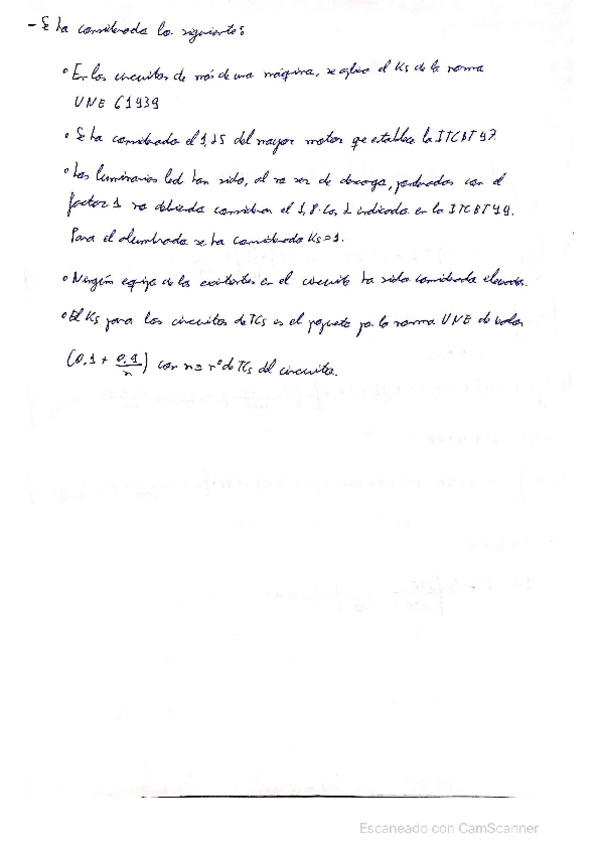 - Se ha considerado lo siguiente:
• En los circuitos de más de una máquina, se aplica el Ks de la norma
UNE 61939
• Se ha considerado el 1,25 del mayor motor que establece la ITCBT47.
• Las luminarias led han sido, al no ser de descarga, ponderadas con el
factor 1 no debiendo considerar el 1,8. Cos indicado en la ITCBT44.
Para el alumbrado se ha considerado Ks=1.
• Ningún equipo de los existentes en el circuito ha sido considerado elevador.
• El Ks para los circuitos de TCs es el propuesto por la norma UNE de valor
(0,1 + 0,9/n) con n = nº de TCs del circuito.
Escaneado con CamScanner